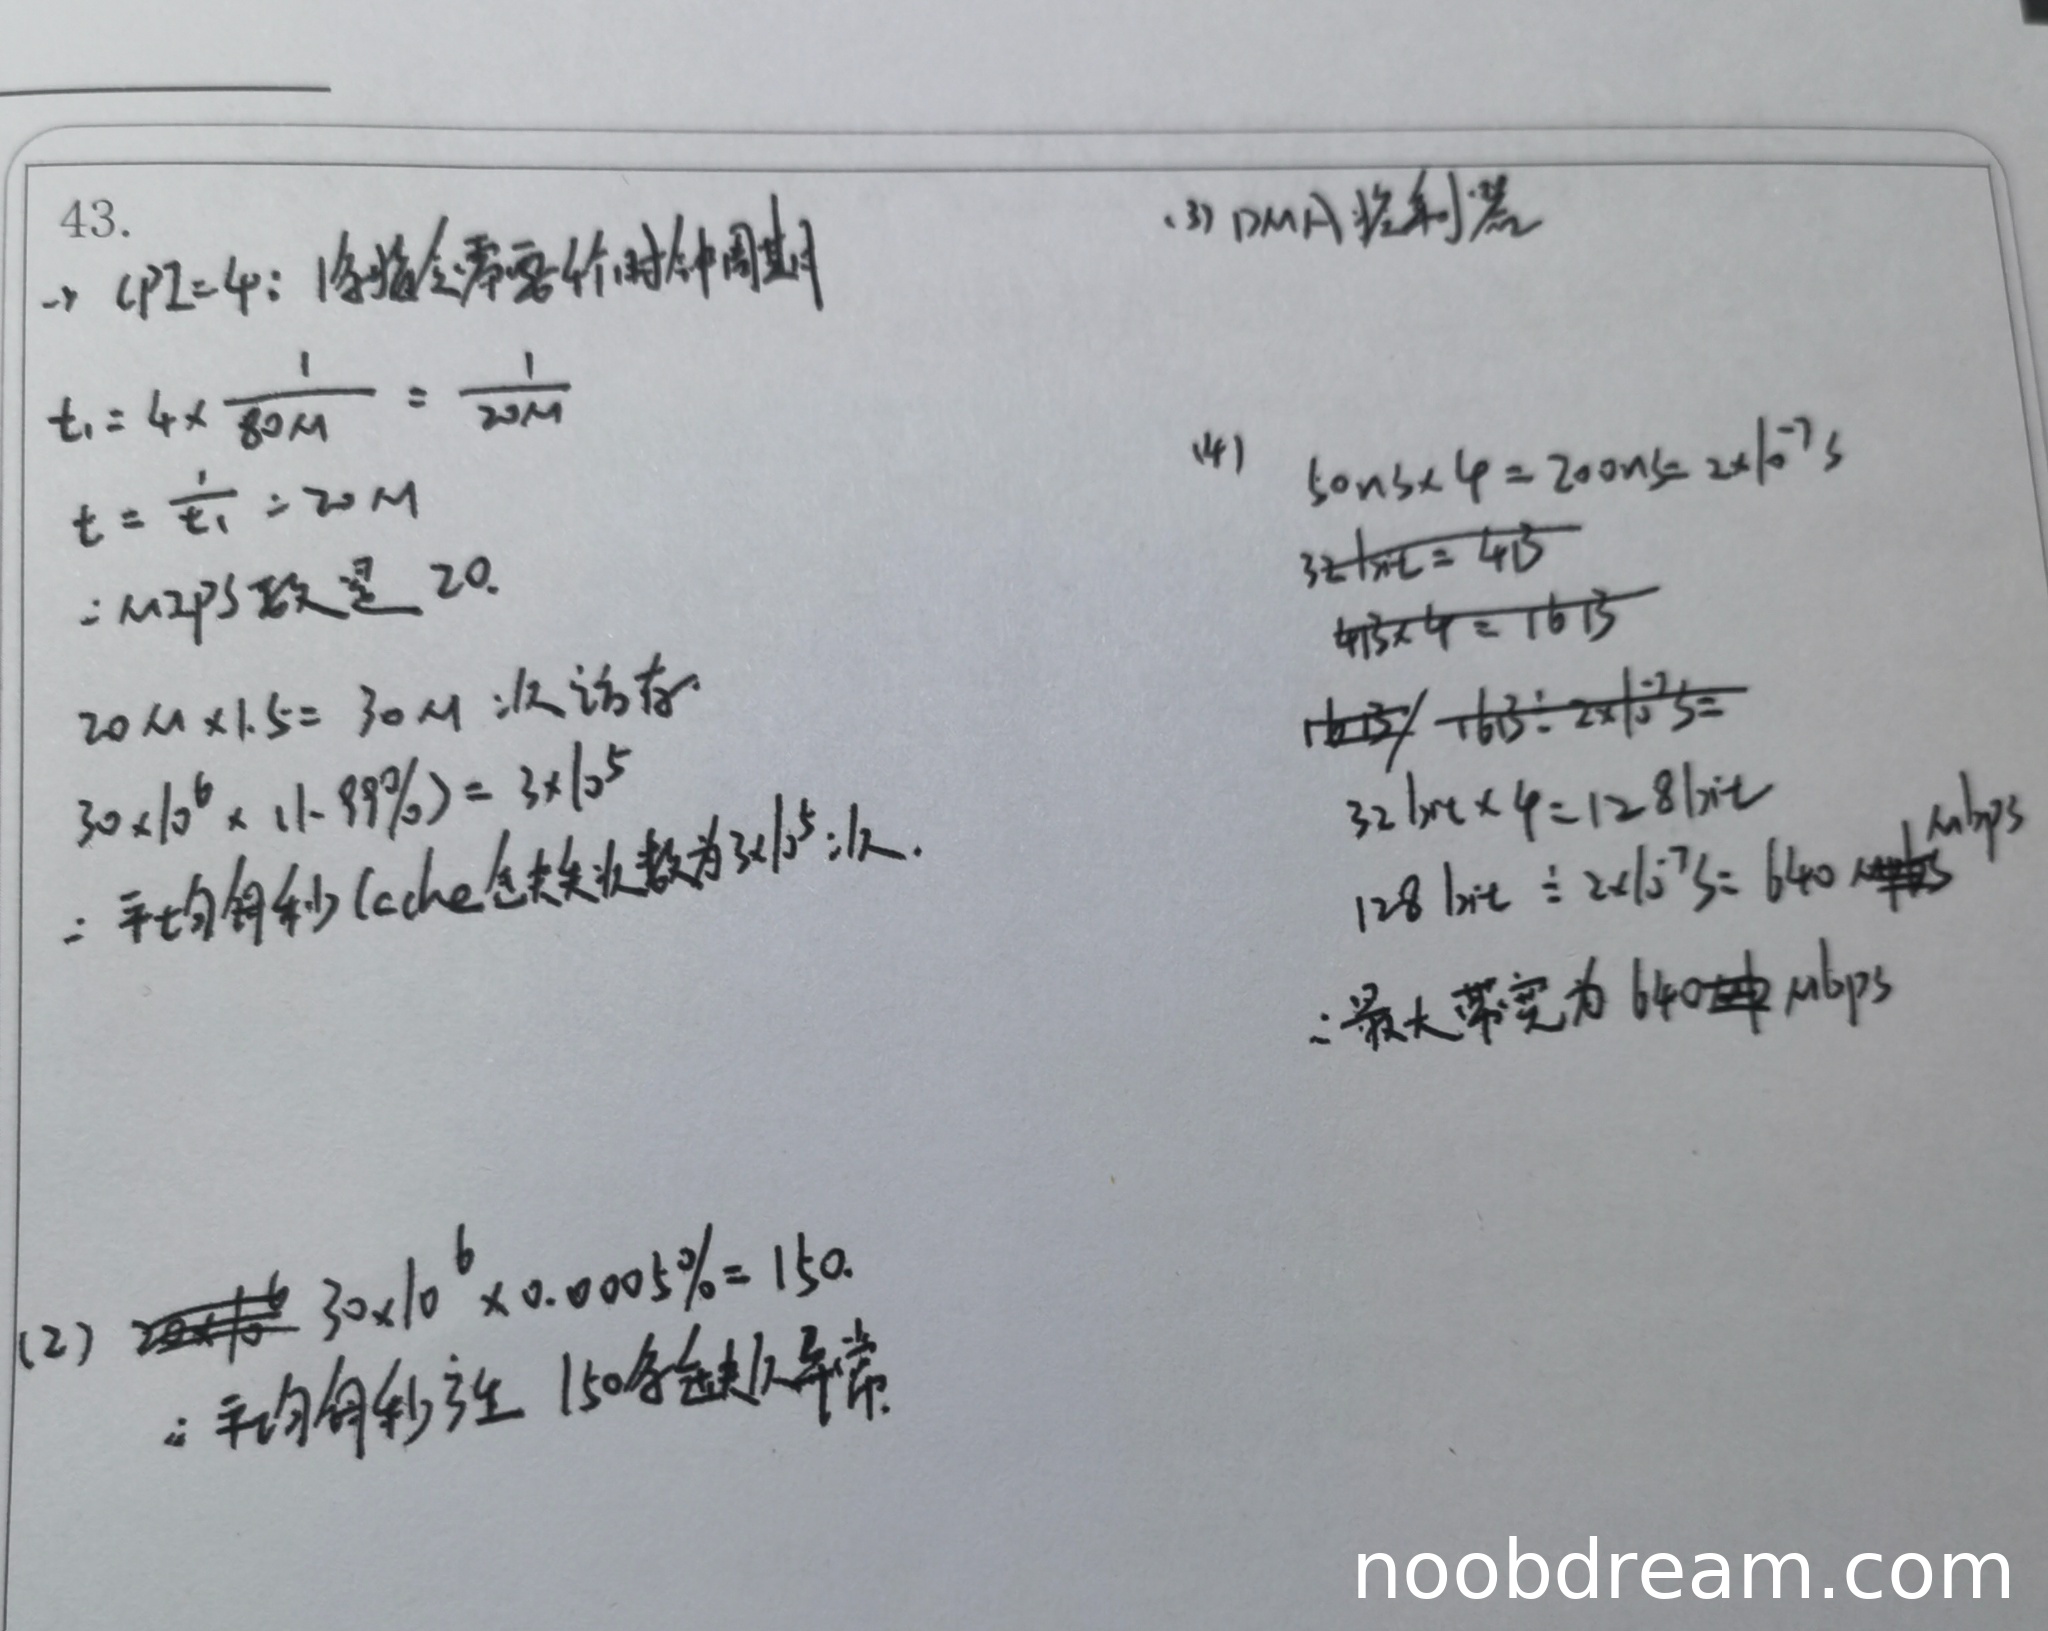 43.
→ CPI=4: 1条指令需要4个时钟周期
t₁ = 4 × 1/80M = 1/20M
t = 1/t₁ = 20M
∴ MIPS数是 20.
20M × 1.5 = 30M 次访存.
30×10⁶ × (1-99%) = 3×10⁵
∴ 平均每秒Cache缺失次数为3×10⁵次.
(2) 30×10⁶ × 0.0005% = 150.
∴ 平均每秒产生 150条缺页异常.
(3) DMA控制器
(4) 50ns × 4 = 200ns = 2×10⁻⁷s
32bit = 4B
4B×4 = 16B
16B/ 16B ÷ 2×10⁻⁷s =
32bit × 4 = 128bit
128 bit ÷ 2×10⁻⁷s = 640 Mbps
∴ 最大带宽为 640 Mbps
noobdream.com